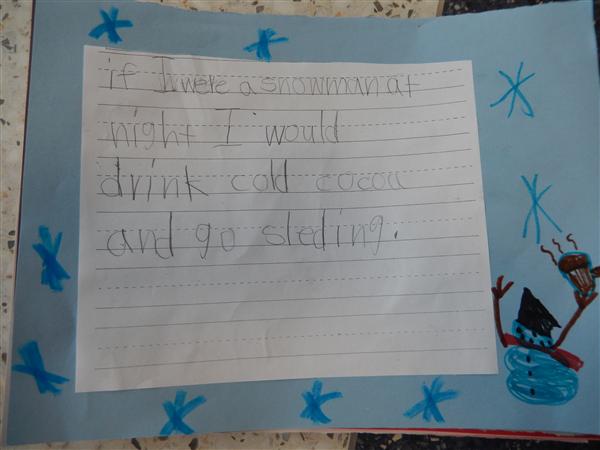 if I were a snowman at
night I would
drink cold cocoa
and go sleding.